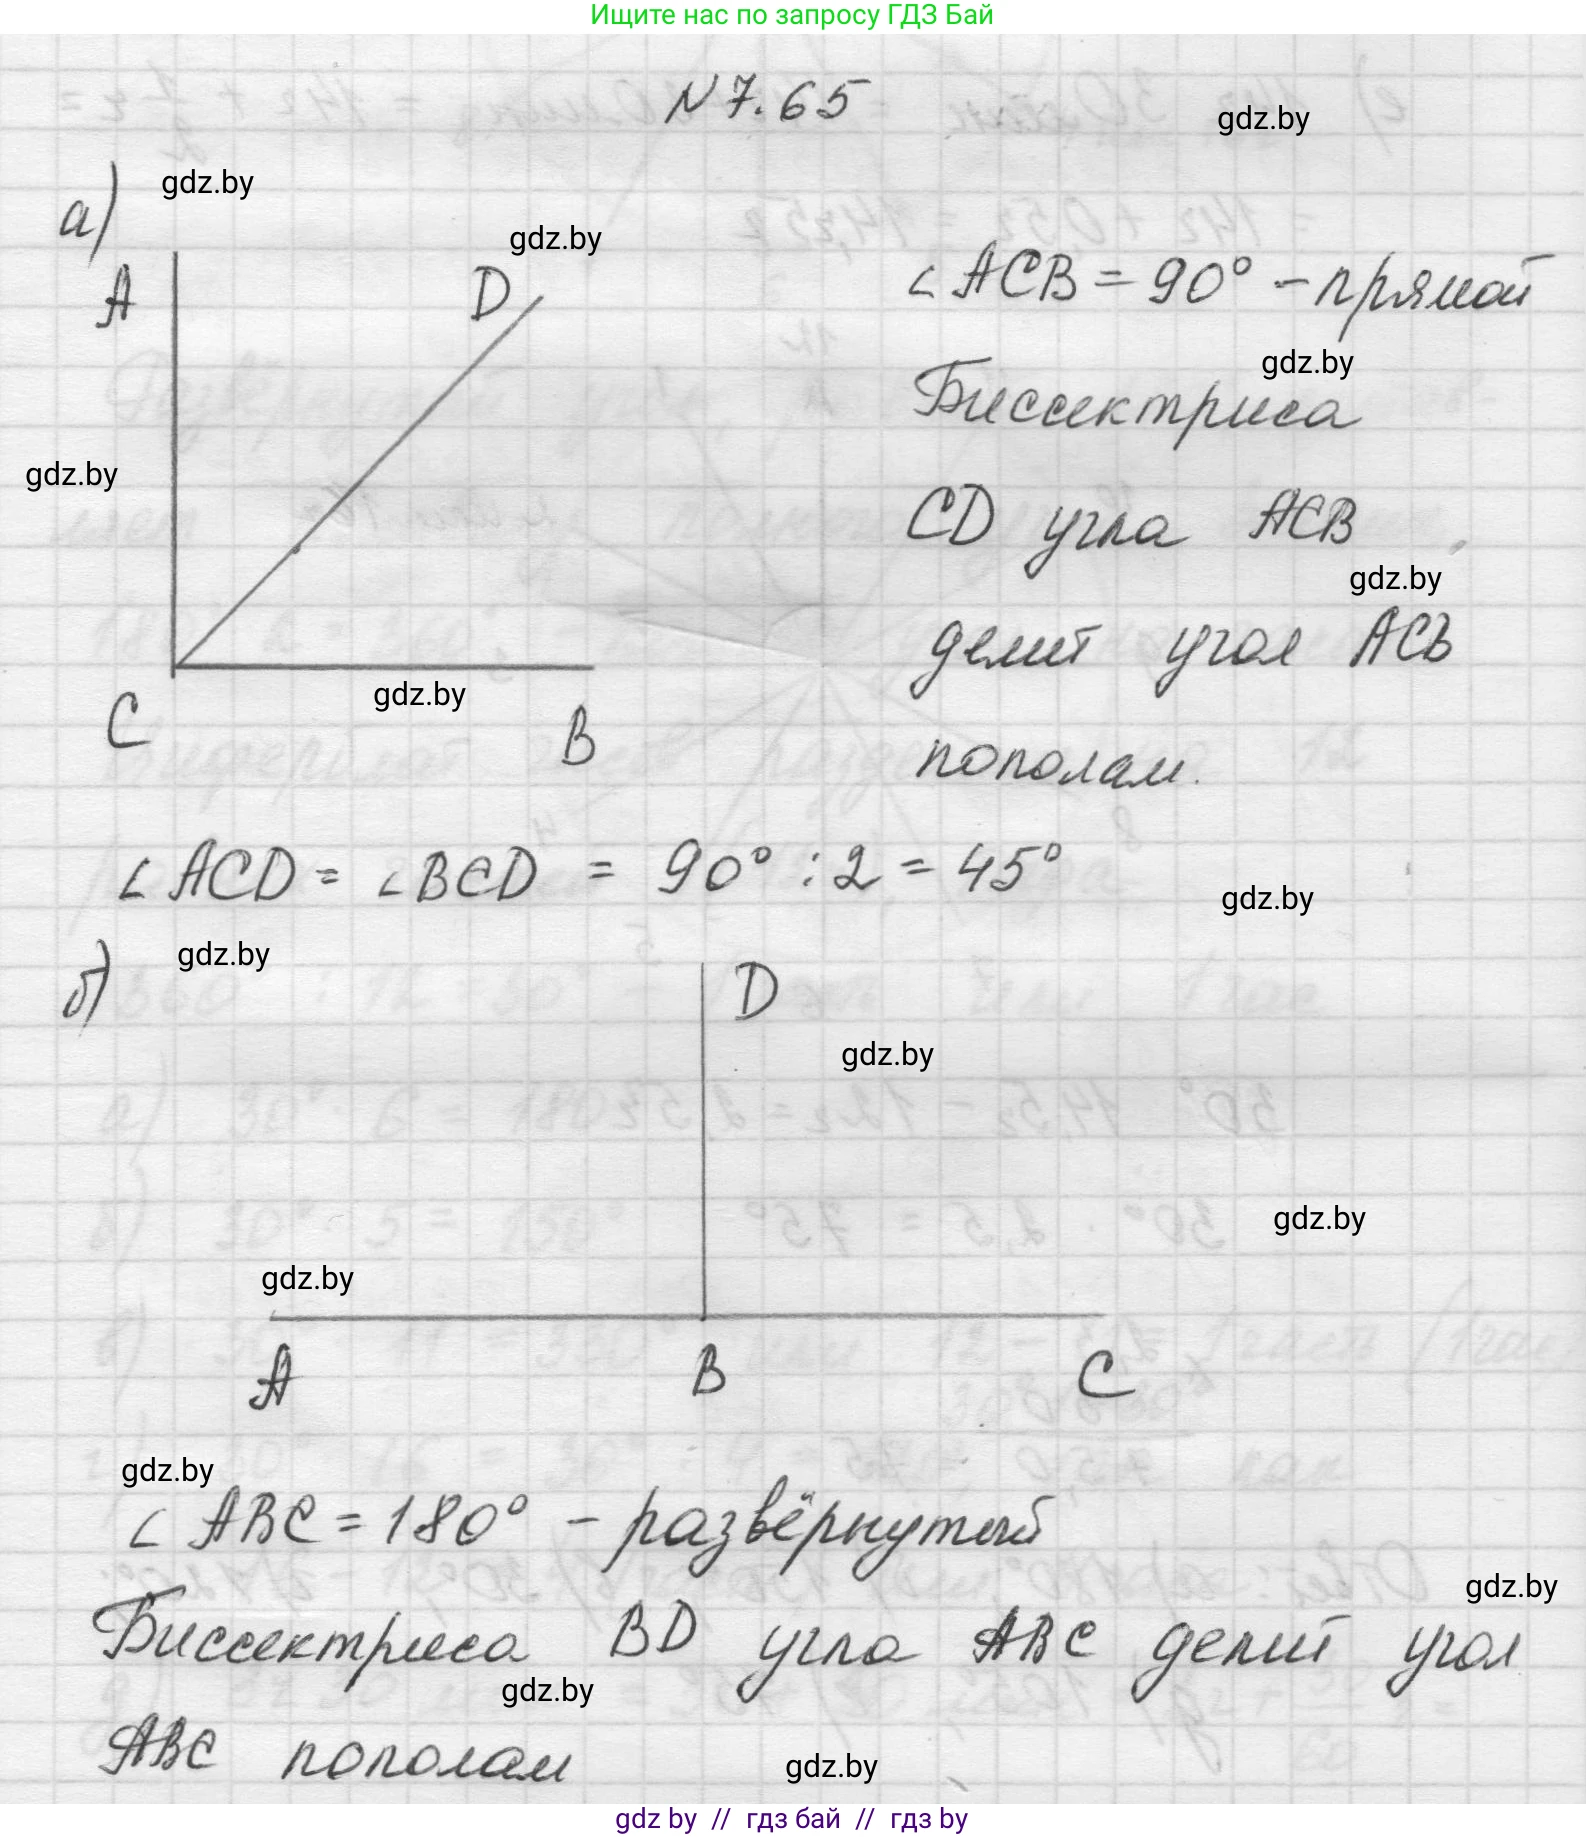 Ищите нас по запросу ГДЗ Бай
N 7.65
gdz.by
а)
gdz.by
gdz.by
A
D
∠ ACB = 90° - прямой
gdz.by
Биссектриса
gdz.by
CD угла ACB
gdz.by
делит угол ACB
gdz.by
C
B
пополам.
∠ ACD = ∠ BCD = 90° : 2 = 45°
gdz.by
б)
gdz.by
D
gdz.by
gdz.by
gdz.by
A
B
C
gdz.by
∠ ABC = 180° - развёрнутый
gdz.by
Биссектриса BD угла ABC делит угол
gdz.by
ABC пополам
gdz.by
gdz by // гдз бай // gdz by